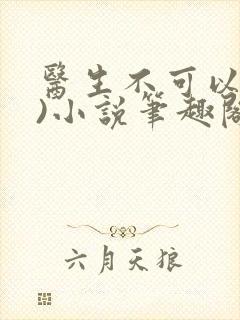 醫生不可以
)小說筆趣閣
六月天狼